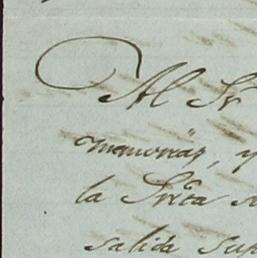 Al Sr
memorias, y
la Srita
salida sup